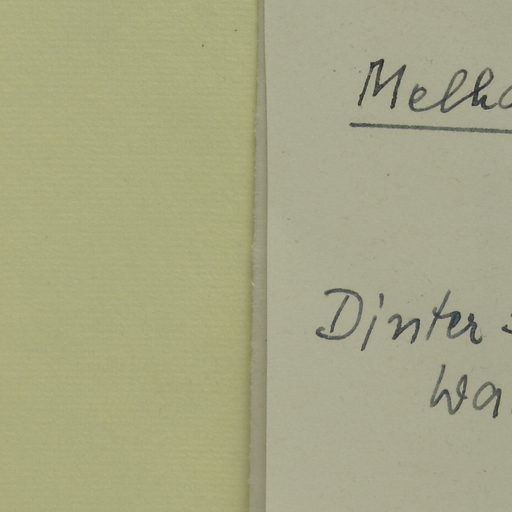 Melha
Dinter
Wa